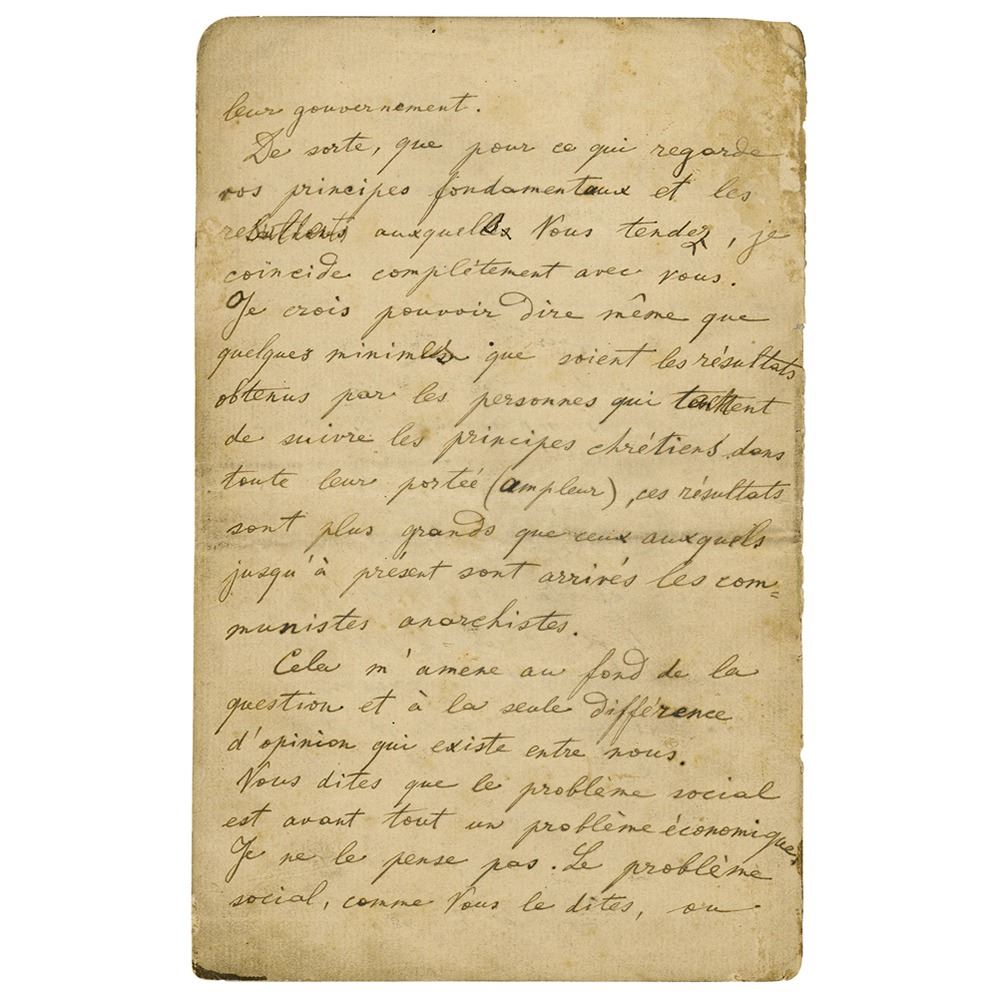 leur gouvernement.
De sorte, que pour ce qui regarde
vos principes fondamentaux et les
auxquels Vous tendez, je
coïncide complétement avec vous.
Je crois pouvoir dire même que
quelques minimes que soient les résultats
obtenus par les personnes qui tachent
de suivre les principes chrétiens dans
toute leur portée (ampleur), ces résultats
sont plus grands que ceux auxquels
jusqu'à présent sont arrivés les com=
munistes anarchistes.
Cela m'amene au fond de la
question et à la seule différence
d'opinion qui existe entre nous.
Vous dites que le problème social
est avant tout un problème économique.
Je ne le pense pas. Le problème
social, comme Vous le dites, ou